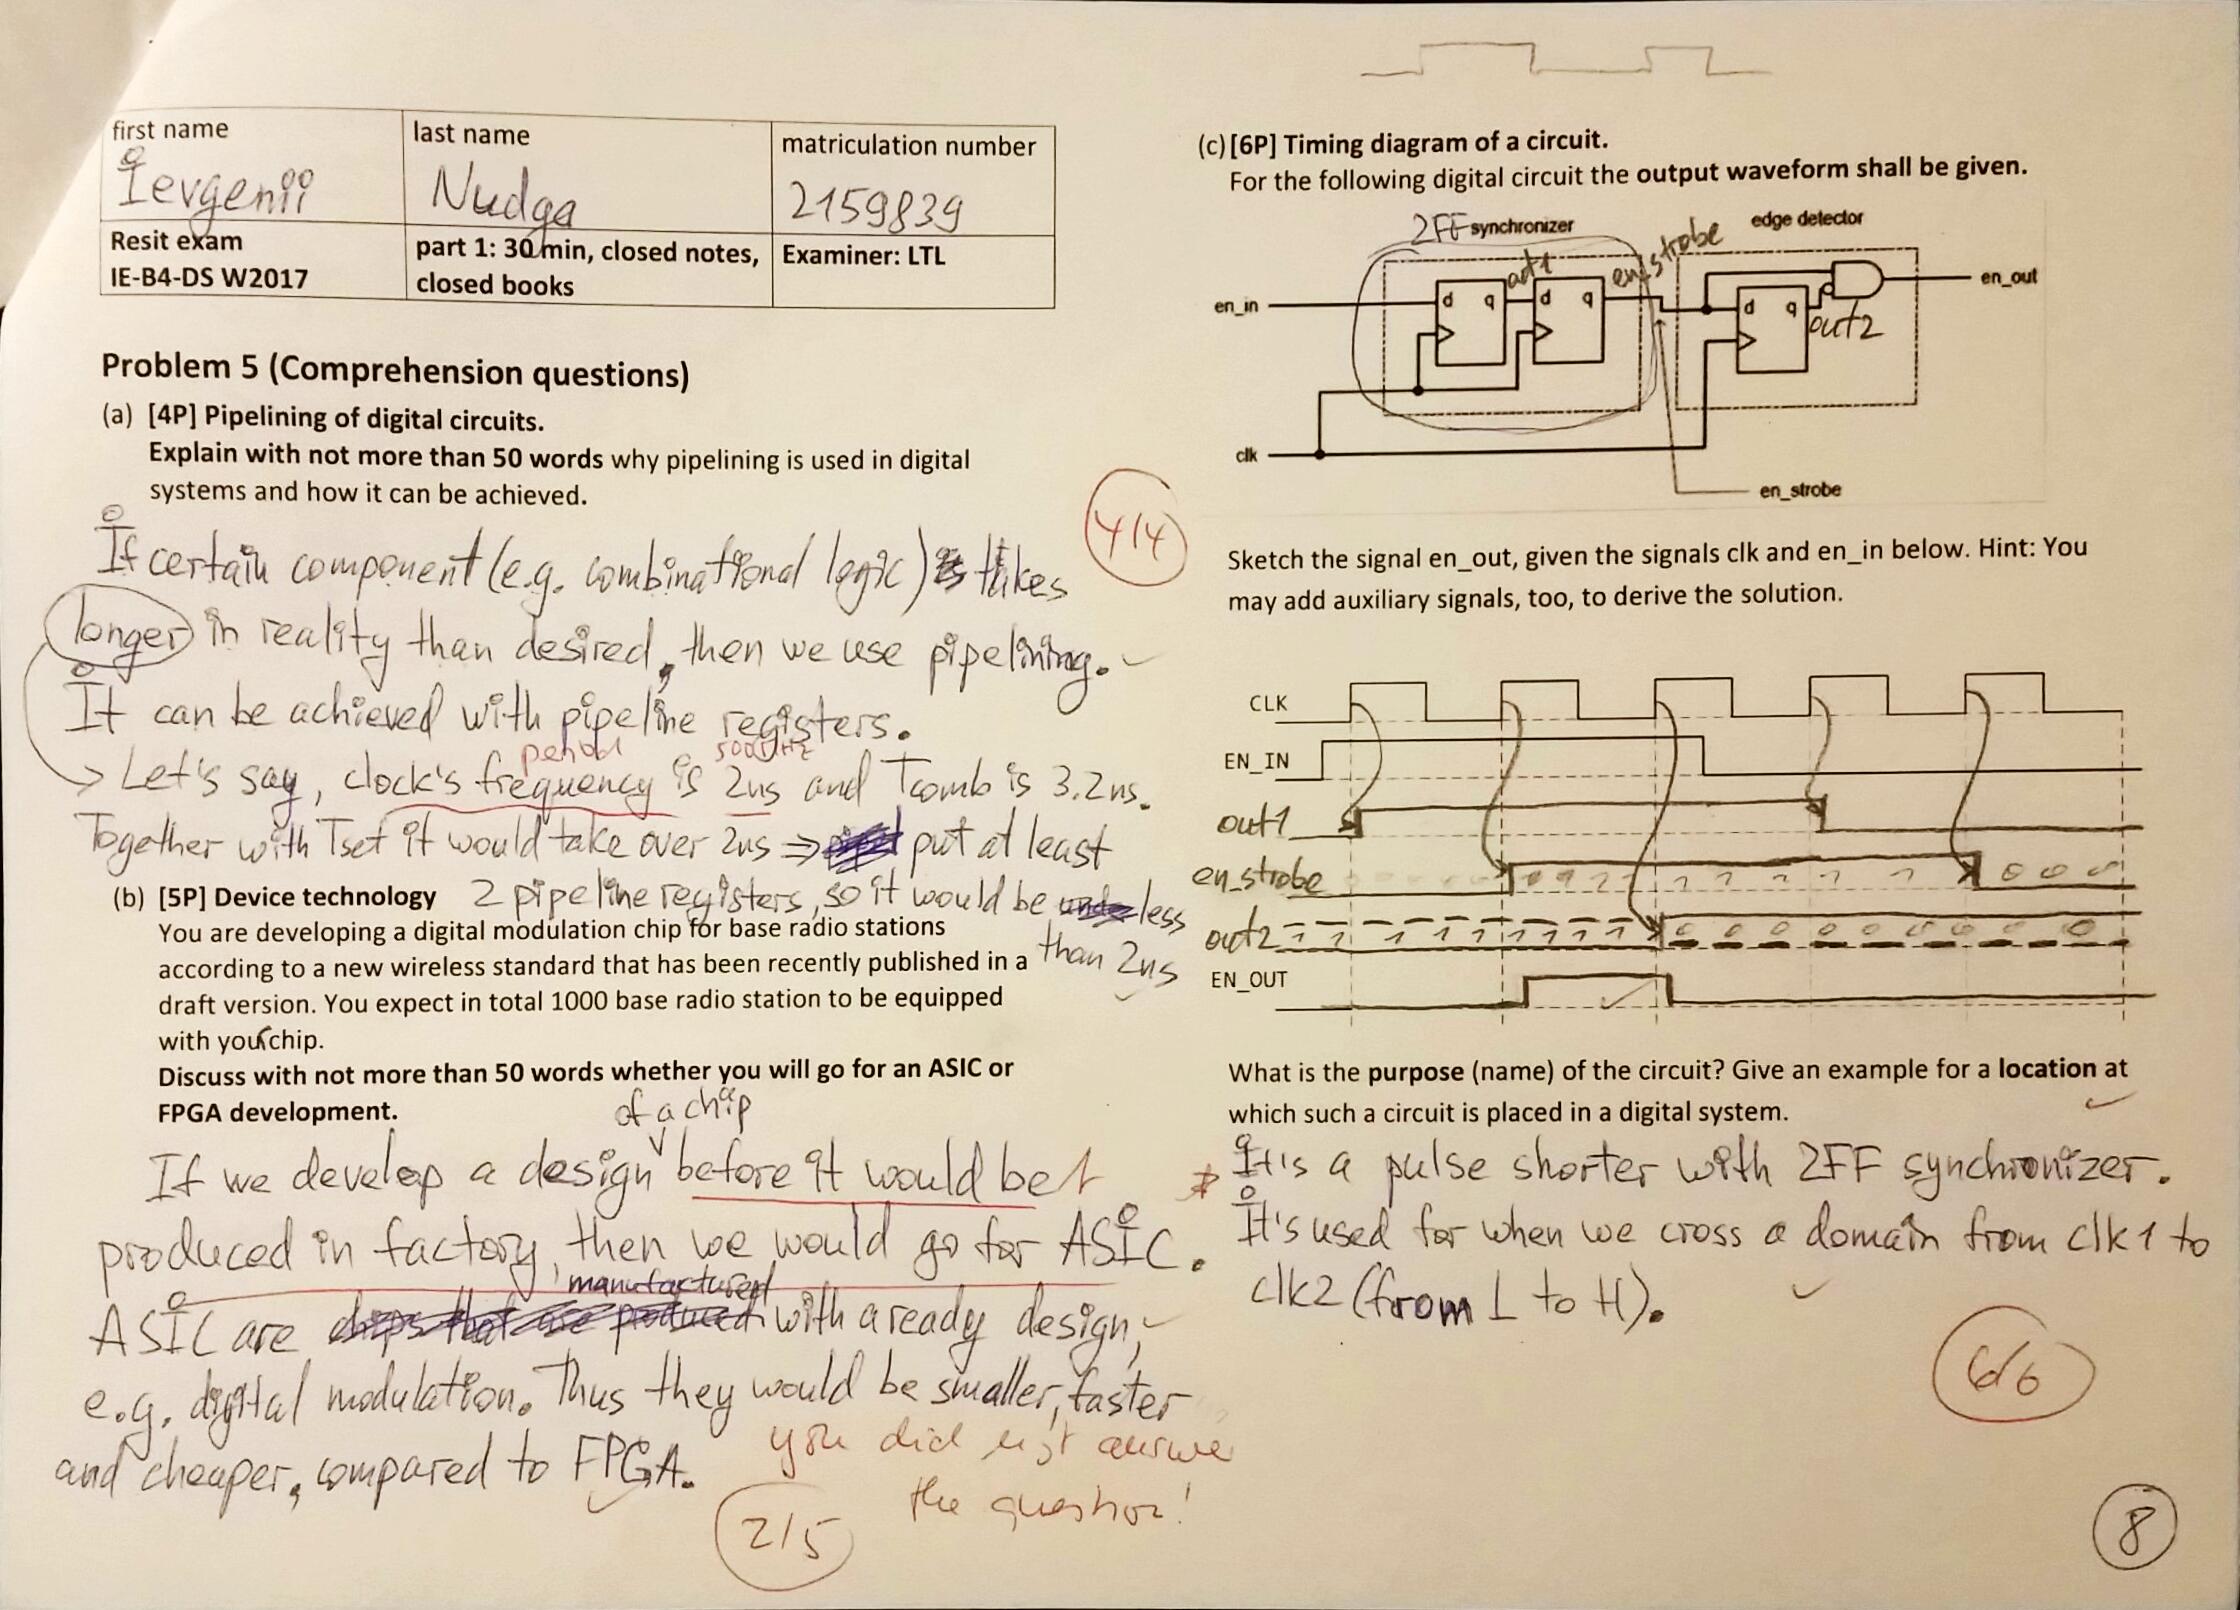 first name
last name
matriculation number
Ievgenii
Nudga
2159839
Resit exam
IE-B4-DS W2017
part 1: 30 min, closed notes,
closed books
Examiner: LTL
Problem 5 (Comprehension questions)
(a) [4P] Pipelining of digital circuits.
Explain with not more than 50 words why pipelining is used in digital
systems and how it can be achieved.
4/4
If certain component (e.g. combinational logic) takes
longer in reality than desired, then we use pipelining.
It can be achieved with pipeline registers.
period 500MHz
→ Let's say, clock's frequency is 2ns and Tcomb is 3.2ns.
Together with Tset it would take over 2ns ⇒ put at least
2 pipeline registers, so it would be less
than 2ns
(b) [5P] Device technology
You are developing a digital modulation chip for base radio stations
according to a new wireless standard that has been recently published in a
draft version. You expect in total 1000 base radio station to be equipped
with your chip.
Discuss with not more than 50 words whether you will go for an ASIC or
FPGA development.
of a chip
If we develop a design before it would be
produced in factory, then we would go for ASIC.
manufactured
ASIC are with a ready design,
e.g. digital modulation. Thus they would be smaller, faster
and cheaper, compared to FPGA.
you did not answer
the question!
2/5
(c) [6P] Timing diagram of a circuit.
For the following digital circuit the output waveform shall be given.
2FF synchronizer
edge detector
out1
en_strobe
en_in
d q
d q
d q
en_out
out2
clk
en_strobe
Sketch the signal en_out, given the signals clk and en_in below. Hint: You
may add auxiliary signals, too, to derive the solution.
CLK
EN_IN
out1
en_strobe
out2
EN_OUT
What is the purpose (name) of the circuit? Give an example for a location at
which such a circuit is placed in a digital system.
It's a pulse shorter with 2FF synchronizer.
It's used for when we cross a domain from clk1 to
clk2 (from L to H).
6/6
8